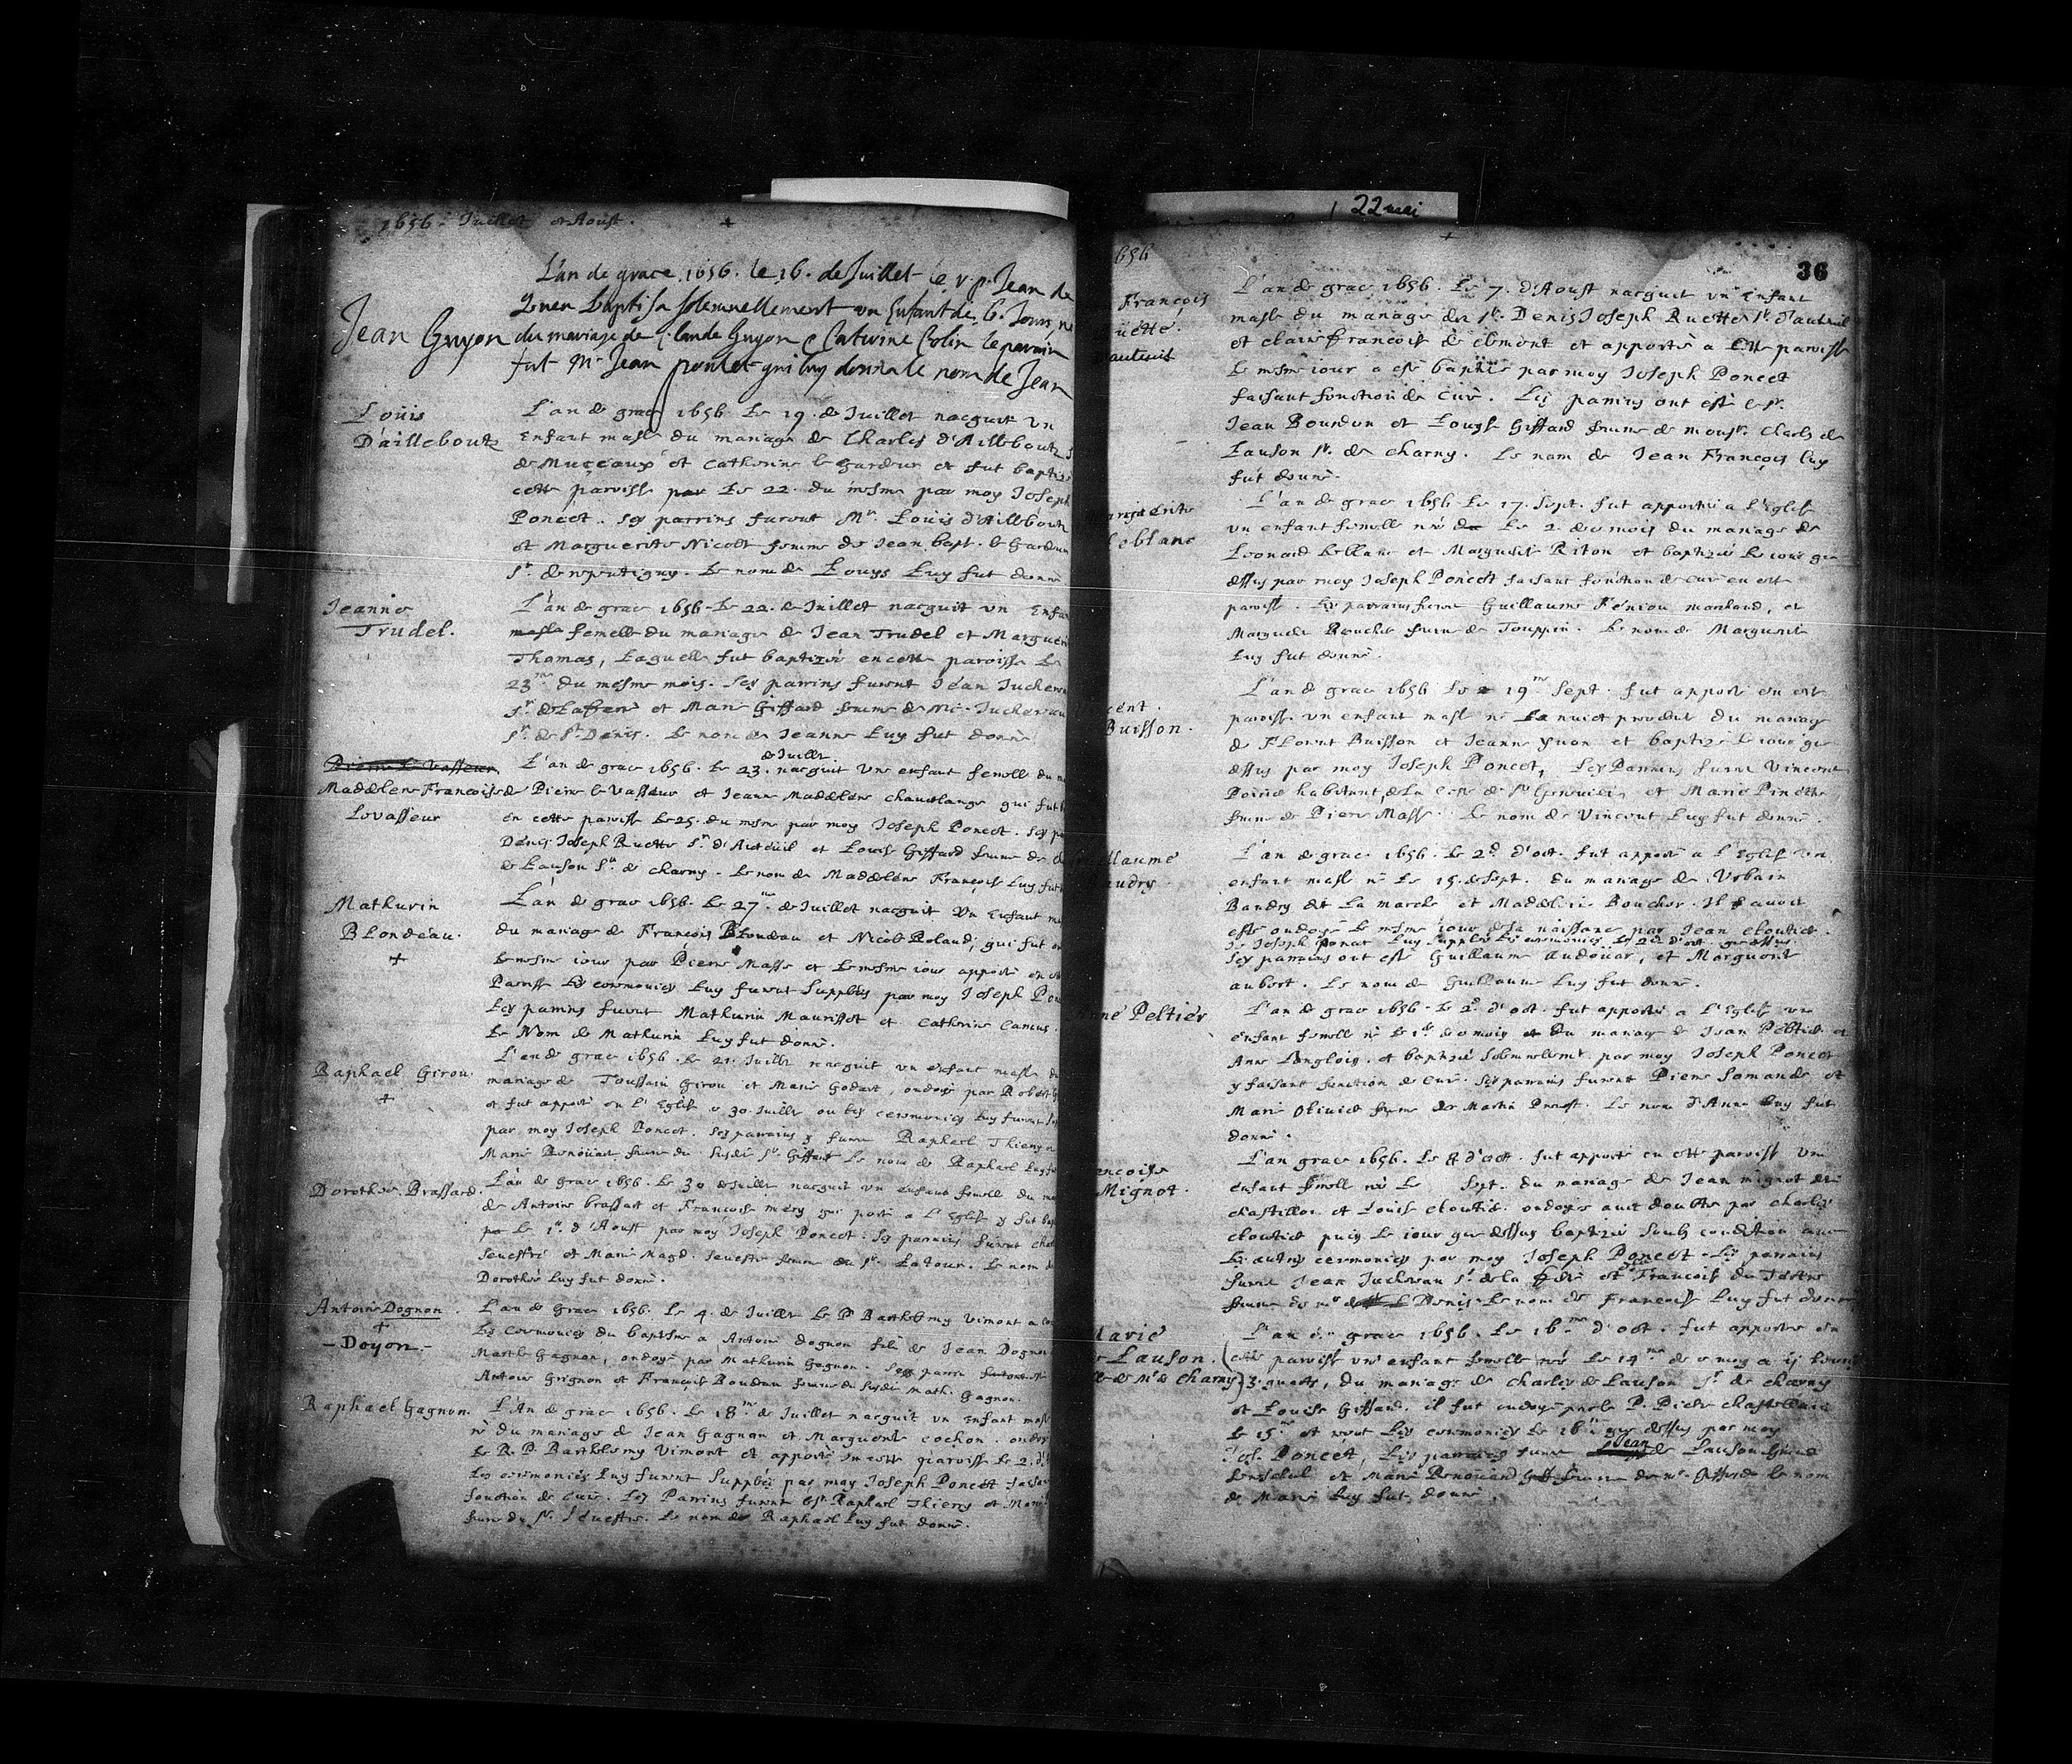 1656. Juillet et Aoust.
L'an de grace 1656. le 16. de Juillet le r. p. Jean de
Quen baptisa solemnellement un Enfant de 6. Jours né
Jean Guyon
du mariage de Claude Guyon & Caturine Colin le parain
fut Mr Jean poulet qui luy donna le nom de Jean
Loüis
D'aillebout
L'an de grace 1656. Le 19. de Juillet nacquit un
Enfant masle du mariage de Charles d'Aillebout S
de Muceaux et Catherine le Gardeur et fut baptize
cette paroisse par Le 22. du mesme par moy Joseph
Poncet. Ses parrins furent Mr. Loüis d'Aillebout
et Marguerite Nicolt femme de Jean bapt. le Gardeur
Sr. de repentigny. Le nom de Louys Luy fut donné
Jeanne
Trudel.
L'an de grace 1656. Le 22. de Juillet nacquit un Enfa
masle femelle du mariage de Jean Trudel et Marguer
Thomas, Laquelle fut baptizée en cette paroisse Le
23me du mesme mois. Ses parrins furent Jean Juchereau
Sr. de Laferté et Marie Giffard femme de Nic. Juchereau
Sr. de St. Denis. Le nom de Jeanne Luy fut donné
Pierre Le Vasseur
Madelene Françoise
Levasseur
de Juillet
L'an de grace 1656. Le 23. nacquit une enfant femelle du m
de Pierre le Vasseur et Jeanne Madelene chaverlange qui fut b
en cette paroisse Le 25. du mesme par moy Joseph Poncet. Ses pa
Denis Joseph Ruette Sr. d'Auteüil et Louise Giffard femme de ch
de Lauson Sr. de charny. Le nom de Madelene Françoise Luy fut
Mathurin
Blondeau.
+
L'an de grace 1656. Le 27me de Juillet nacquit un Enfant ma
du mariage de François Blondeau et Nicole Roland, qui fut on
Le mesme iour par Pierre Masse et Le mesme iour apporté en ce
Paroisse Les ceremonies Luy furent Supplées par moy Joseph Pon
Les parrins furent Mathurin Maurisset et Catherine Camus.
Le Nom de Mathurin Luy fut donné.
Raphael Girou.
+
L'an de grace 1656. Le 21. Juillet nacquit un enfant masle du
mariage de Toussain Girou et Marie Godart, ondoyé par Robert G
et fut apporté en l'Eglise le 30 Juillet ou les ceremonies Luy furent S
par moy Joseph Poncet. Ses parrains y furent Raphael Thierry et
Marie Renoüart femme du Susdit Sr. Giffart Le nom de Raphael Luy fut
Dorothée Brassard.
L'an de grace 1656. Le 30 de Juillet nacquit un enfant femelle du ma
de Antoine brassart et Françoise mery qui porté a L'Eglise y fut bap
Le 1er. d'Aoust par moy Joseph Poncet. Ses parrains furent char
Sevestre et Marie Magd. Sevestre femme du Sr. La Tour. Le nom de
Dorothée Luy fut donné.
Antoine Dognon.
+
- Doyon. -
L'an de Grace 1656. Le 4. de Juillet Le P Barthelemy Vimont a
Les Ceremonies du baptesme a Antoine Dognon fils de Jean Dognon
Marthe Gagnon, ondoyé par Mathurin Gagnon.
Antoine Grignon et Françoise Boudeau femme du Susdit Math. Gagnon.
Raphael Gagnon.
L'An de grace 1656. Le 18me de Juillet nacquit un Enfant masle
né du mariage de Jean Gagnon et Marguerite cochon. ondoy
Le R. P. Barthelemy Vimont et apporté en cette paroisse Le 2. d'
Les ceremonies Luy furent Supplées par moy Joseph Poncet faisa
fonction de curé. Les Parrins furent Raphael Thierry et Marie
femme du Sr. Sevestre. Le nom de Raphael Luy fut donné.
22 mai
656
36
François
üette.
auteuil
L'an de grace 1656. Le 7. d'Aoust nacquit un Enfant
masle du mariage de Sr. Denis Joseph Ruette Sr. d'auteuil
et claire françoise de clement et apporté a cette paroisse
Le mesme iour a esté baptizé par moy Joseph Poncet
faisant fonction de curé. Les parrins ont esté le Sr.
Jean Bourdon et Louyse Giffard femme de monsr. Charles de
Lauson Sr. de charny. Le nom de Jean François luy
fut donné.
arguerite
leblanc
L'an de grace 1656. Le 17. Sept. fut apportée a l'Eglise
un enfant femelle née Le 2. de ce mois du mariage de
Leonard Leblanc et Marguerite Riton et baptizée le iour que
dessus par moy Joseph Poncet faisant fonction de curé en cette
paroisse. Les parrains furent Guillaume Feniou marchand, et
Marguerite Boucher femme de Touppin. Le nom de Marguerite
Luy fut donné.
cent.
Buisson.
L'an de grace 1656 Le 19me Sept. fut apporté en cette
paroisse un enfant masle né La nuict precedente du mariage
de Florent Buisson et Jeanne Yvon et baptizé Le iour que
dessus par moy Joseph Poncet, Les Parrains furent Vincent
Poirié habitant de La coste de Ste Genevieve et Marie Pinette
femme de Pierre Masse. Le nom de Vincent Luy fut donné.
llaume
audry.
L'an de grace 1656. Le 2d d'oct. fut apporté a L'Eglise un
enfant masle né Le 15. de Sept. du mariage de Urbain
Baudry dit La marche et Madeleine Boucher. Il avoit
esté ondoyé Le mesme iour de sa naissance par Jean cloutier.
Je Joseph Poncet Luy Supplée Les ceremonies Le 2d d'oct. que dessus.
Ses parrains ont esté Guillaume audouar, et Marguerite
aubert. Le nom de Guillaume Luy fut donné.
nne Peltier
L'an de grace 1656. Le 2d d'oct. fut apportée a L'Eglise une
enfant femelle née Le 1er de ce mois du mariage de Jean Peltier et
Anne Langlois. et baptizée Solemnellemt par moy Joseph Poncet
y faisant fonction de Curé. Ses parrains furent Pierre Somande et
Marie Olivier femme de Martin Prevost. Le nom d'Anne Luy fut
donné.
ançoise
Mignot.
L'an grace 1656. Le 8 d'oct. fut apportée en cette paroisse Une
enfant femelle née Le Sept. du mariage de Jean mignot dit
chastillon et Louise cloutier. ondoyée avec doubte par charles
cloutier puis Le iour que dessus baptizée Soubs condition avec
Les autres ceremonies par moy Joseph Poncet. Les parrains
furent Jean Juchereau Sr. de la ferté et Françoise du Tertre
femme de mr Denis. Le nom de Françoise Luy fut donné
Marie
de Lauson.
lle de Mr de Charny
L'an de grace 1656. Le 16me d'oct. fut apportée en
cette paroisse une enfant femelle née Le 14me de ce moy a ij heures
3. quarts, du mariage de Charles de Lauson Sr. de charny
et Louise Giffard. il fut ondoyé par le P. Pierre chastellain
Le 15me et receut Les ceremonies Le 16me que dessus par moy
Jos. Poncet, Les parrains furent Jean de Lauson Grand
Seneschal et Marie Renoüard femme de mr. Giffard le nom
de Marie Luy fut donné.